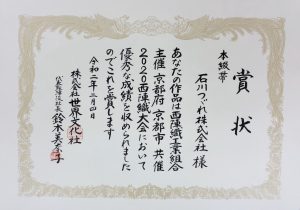 賞状
本綴帯
石川つづれ株式会社 様
あなたの作品は西陣織工業組合
主催 京都府 京都市 共催
2020西陣織大会において
優秀な成績を収められました
のでこれを賞します
令和二年三月四日
株式会社世界文化社
代表取締役社長 鈴木美奈子